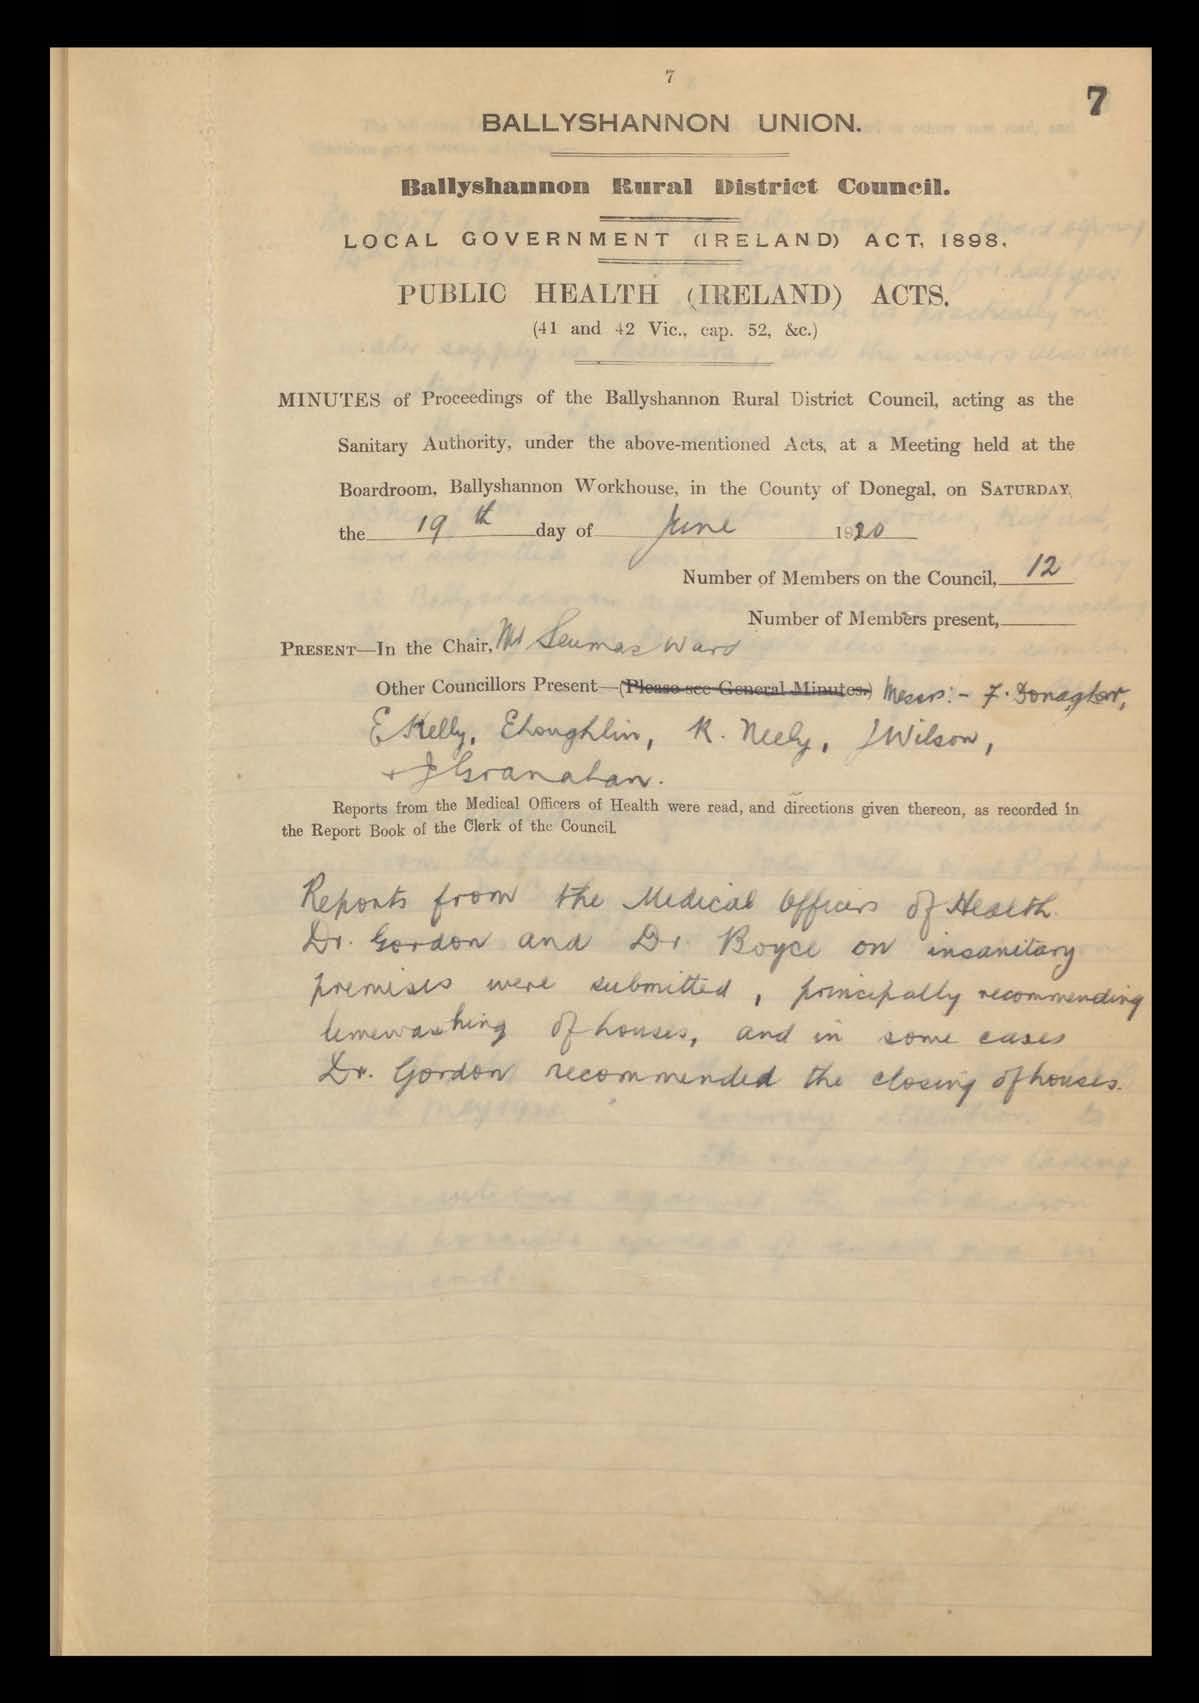 7
7
BALLYSHANNON UNION.
Ballyshannon Rural District Council.
LOCAL GOVERNMENT (IRELAND) ACT, 1898.
PUBLIC HEALTH (IRELAND) ACTS.
(41 and 42 Vic., cap. 52, &c.)
MINUTES of Proceedings of the Ballyshannon Rural District Council, acting as the
Sanitary Authority, under the above-mentioned Acts, at a Meeting held at the
Boardroom, Ballyshannon Workhouse, in the County of Donegal, on SATURDAY,
the 19th day of June 1920
Number of Members on the Council, 12
Number of Members present,
PRESENT—In the Chair, Mr Seumas Ward
Other Councillors Present—(Please see General Minutes.) Messrs:- F. Donagher,
E Kelly, E Loughlin, R. Neely, J Wilson,
+ J Granahan.
Reports from the Medical Officers of Health were read, and directions given thereon, as recorded in
the Report Book of the Clerk of the Council.
Reports from the Medical Officers of Health
Dr. Gordon and Dr. Boyce on insanitary
premises were submitted, principally recommending
limewashing of houses, and in some cases
Dr. Gordon recommended the closing of houses.